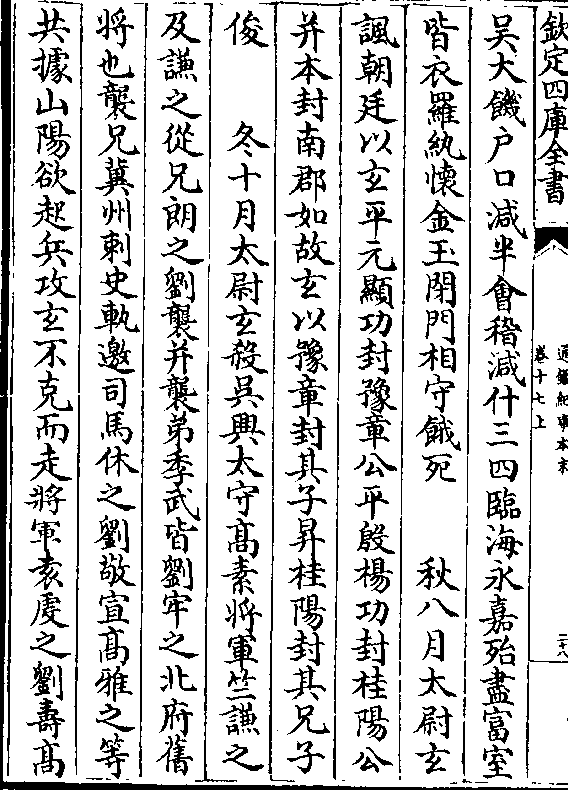 欽定四庫全書
通鑑紀事本末
卷十七上
二十八
吴大饑户口減半會稽減什三四臨海永嘉殆盡富室
皆衣羅紈懷金玉閉門相守餓死　秋八月太尉玄
諷朝廷以玄平元顯功封豫章公平殷楊功封桂陽公
并本封南郡如故玄以豫章封其子昇桂陽封其兄子
俊　冬十月太尉玄殺吳興太守髙素將軍竺謙之
及謙之從兄朗之劉襲并襲弟季武皆劉牢之北府舊
將也襲兄冀州刺史軌邀司馬休之劉敬宣髙雅之等
共據山陽欲起兵攻玄不克而走將軍袁虔之劉壽髙